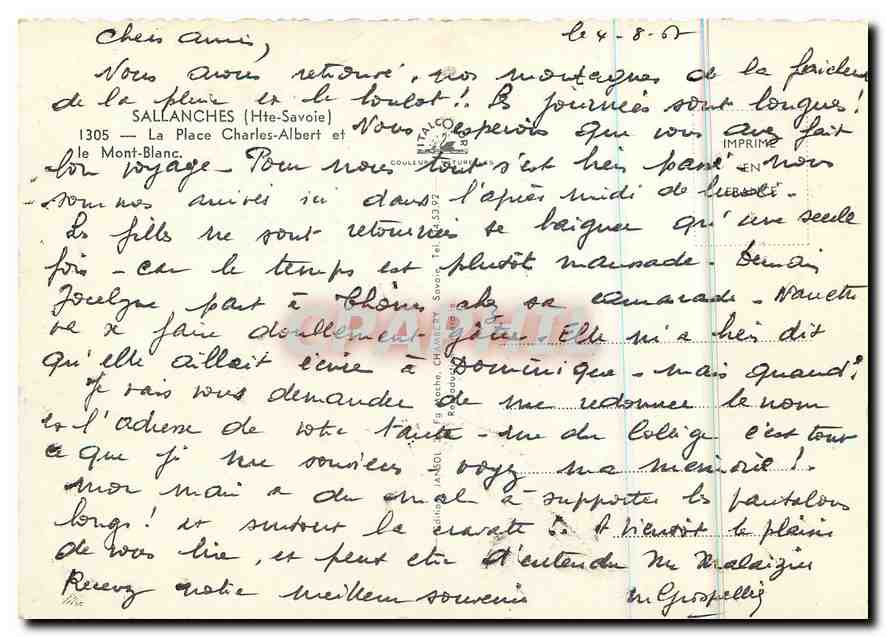 Chers amis, le 4-8-6
Nous avons retrouvé, nos montagnes de la
de la pluie et le boulot!. Les journées sont longues!
SALLANCHES (Hte-Savoie)
1305 — La Place Charles-Albert et
le Mont-Blanc.
Nous espérons que vous avez fait
bon voyage - Pour nous tout s'est très passé - nous
sommes arrivés ici dans l'après midi de lundi.
Les filles ne sont retournées se baigner qu'une seule
fois - car le temps est plutôt maussade - Demain
Jocelyne part à Thônes chez sa camarade - Nanette
va se faire doublement gâter. Elle m'a bien dit
qu'elle allait écrire à Dominique - mais quand?
Je vais vous demander de me redonner le nom
et l'adresse de votre tante - rue du Collège c'est tout
ce que je me souviens - voyez ma mémoire!.
Mon mari a du mal à supporter les pantalons
longs! et surtout la cravate!. A bientôt le plaisir
de vous lire, et peut être d'entendre Mr
Recevez notre meilleur souvenir
ITALCOLOR
COULEURS NATURELLES
IMPRIMÉ
EN
Editions JANSOL Fg Mache, CHAMBERY Savoie Tel. 53.92